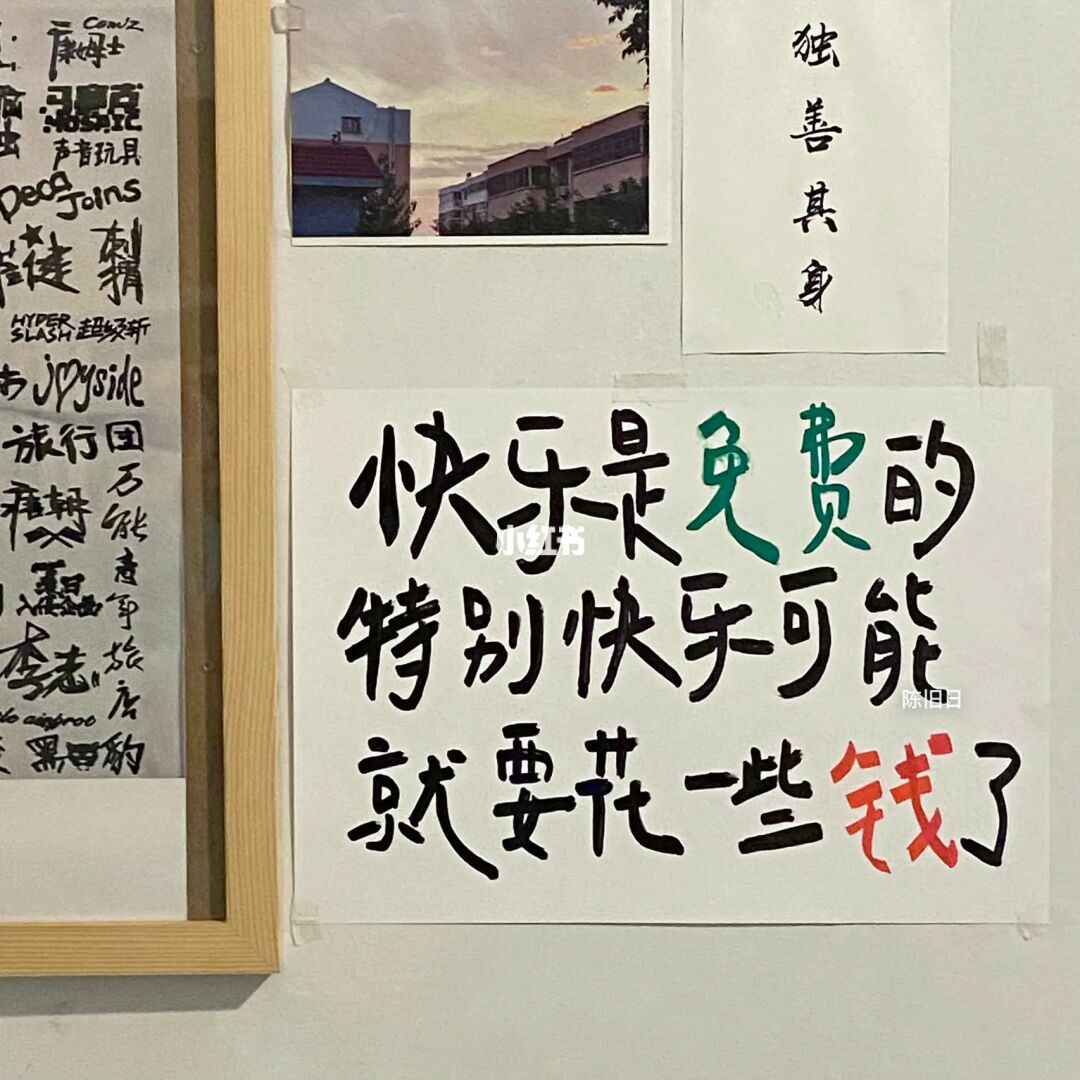 Comuz
康姆士
马赛克
MOSAIC
声音玩具
Deca
Joins
刺猬
HYPER
SLASH 超级斩
joyside
旅行团
万能青年旅店
唐朝
李志
黑豹
独善其身
快乐是免费的
特别快乐可能
就要花一些钱了
小红书
陈旧日